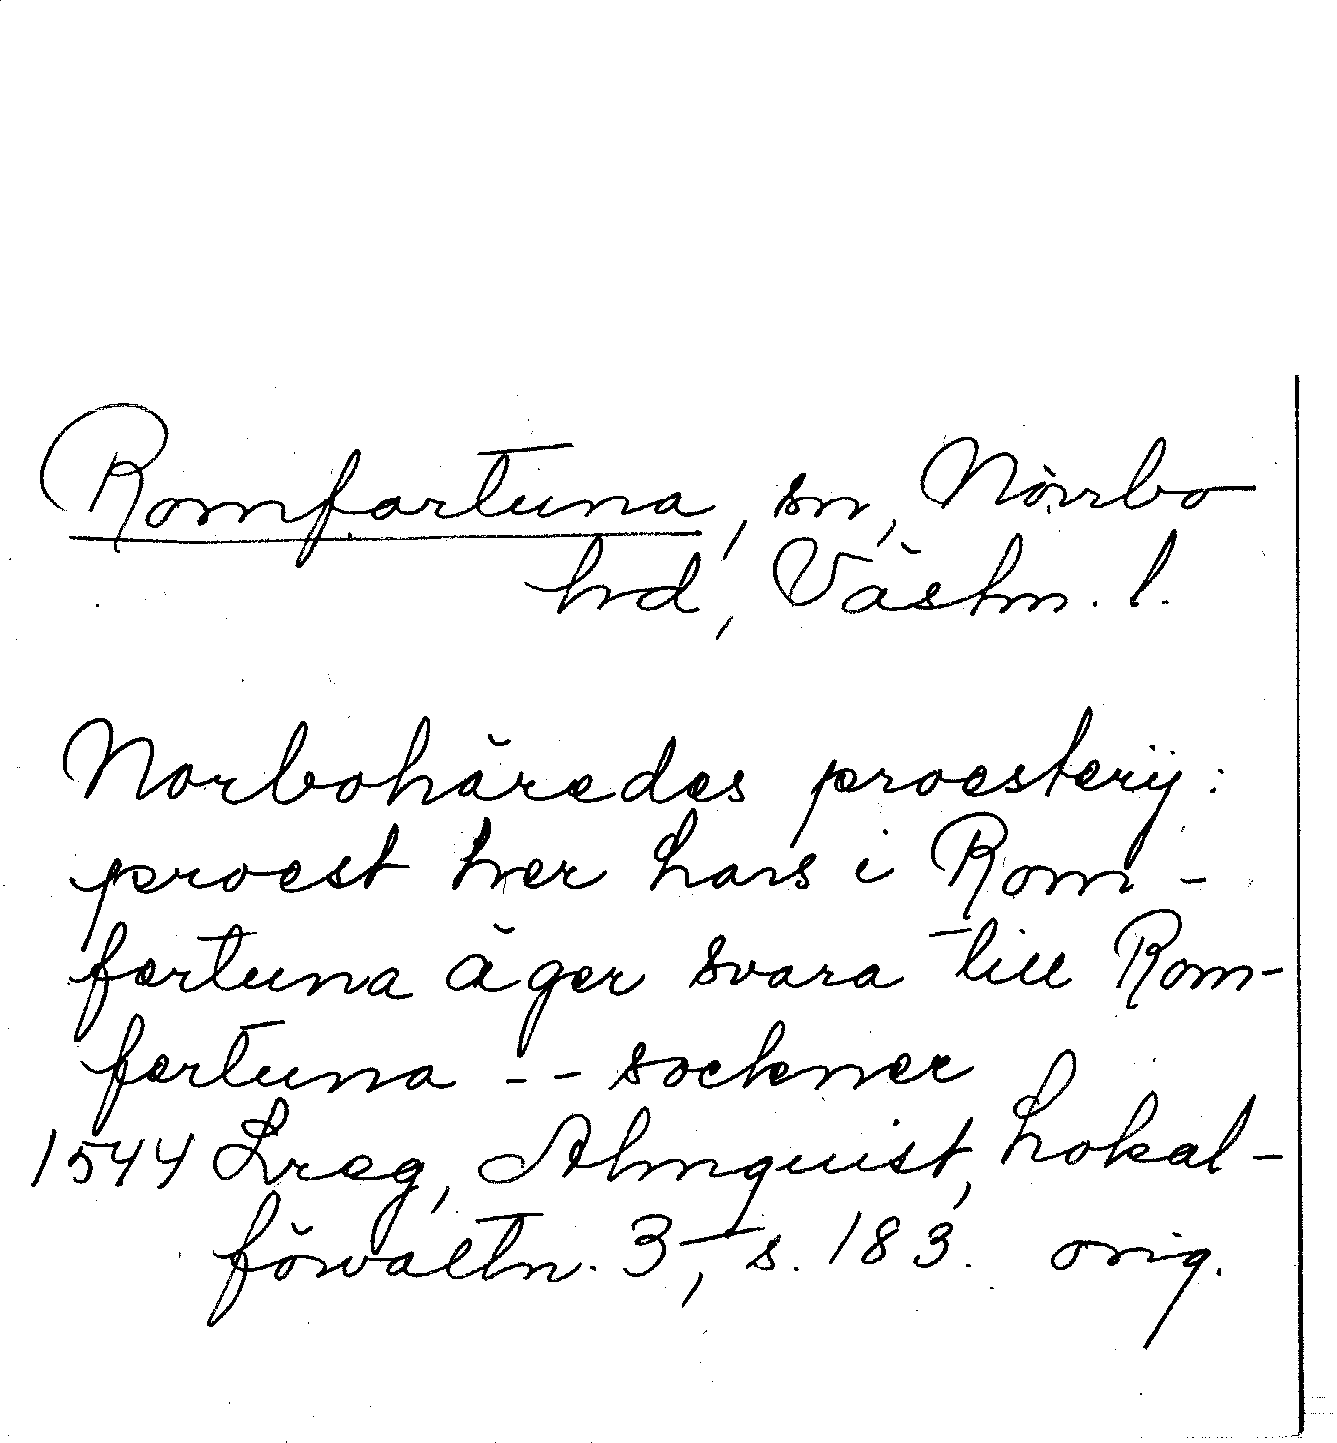 Romfartuna, sn, Norrbo
hd, Västm. l.
Norbohäredes proesterij:
proest her hans i Rom-
fertuna äger svara till Rom-
fertuna -- socknee
1544 Lreg, Almquist, Lokal-
förvaltn. 3, s. 183. orig.